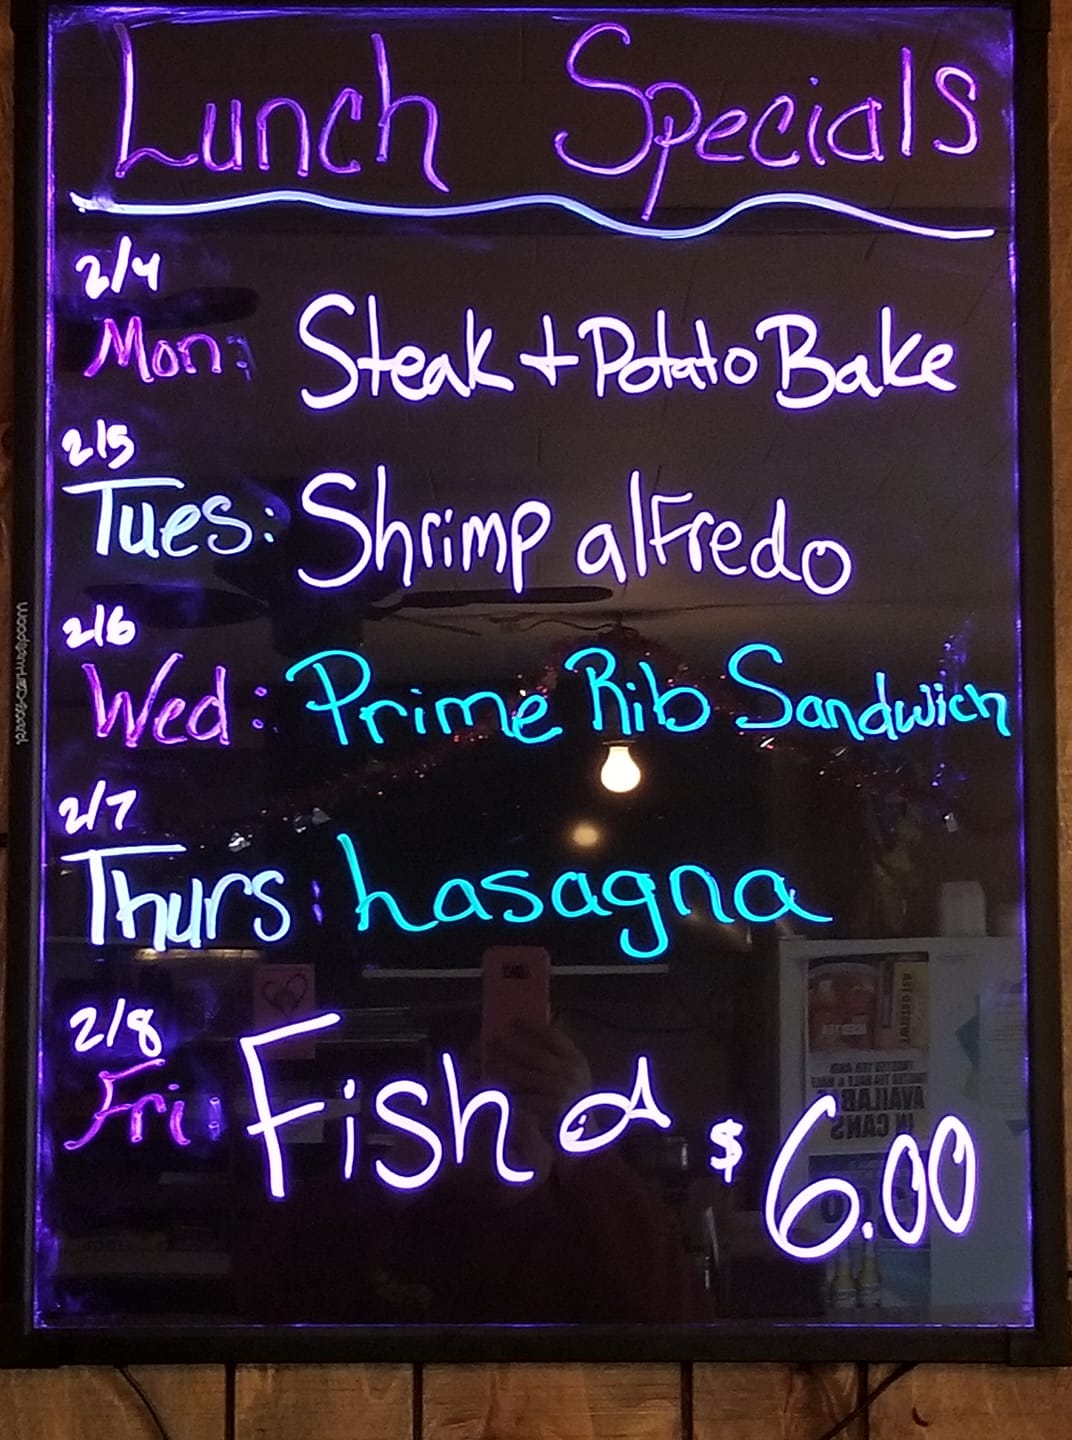 Lunch Specials
2/4
Mon: Steak + Potato Bake
2/5
Tues: Shrimp alfredo
2/6
Wed: Prime Rib Sandwich
2/7
Thurs: Lasagna
2/8
Fri: Fish $6.00
AVAILABLE
IN CANS